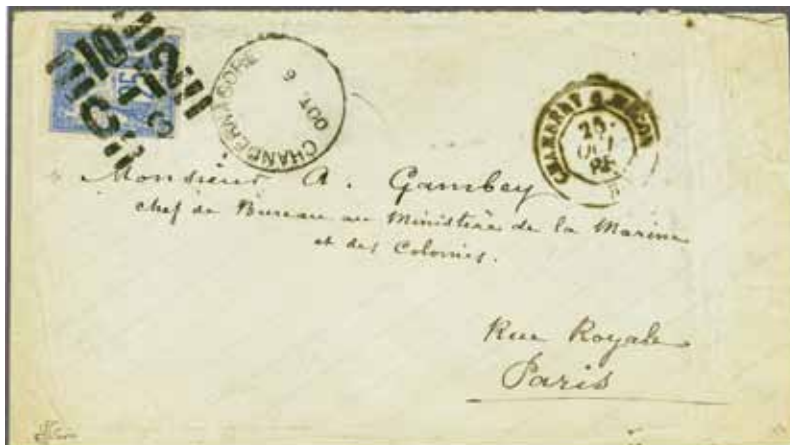 10
25
CHANDERNAGORE
OCT 6
CHAMBERY A MACON
Monsieur A. Gambey
chef de Bureau au Ministère de la Marine
et des Colonies.
Rue Royale
Paris